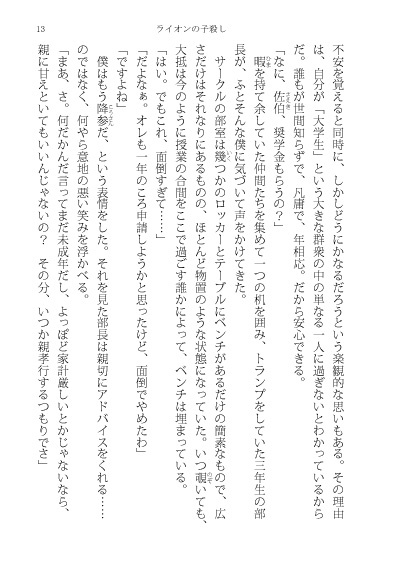 13
ライオンの子殺し
不安を覚えると同時に、しかしどうにかなるだろうという楽観的な思いもある。その理由
は、自分が「大学生」という大きな群衆の中の単なる一人に過ぎないとわかっているから
だ。誰もが世間知らずで、凡庸で、年相応。だから安心できる。
「なに、佐伯、奨学金もらうの？」
暇を持て余していた仲間たちを集めて一つの机を囲み、トランプをしていた三年生の部
長が、ふとそんな僕に気づいて声をかけてきた。
サークルの部室は幾つかのロッカーとテーブルにベンチがあるだけの簡素なもので、広
さだけはそれなりにあるものの、ほとんど物置のような状態になっていた。いつ覗いても、
大抵は今のように授業の合間をここで過ごす誰かによって、ベンチは埋まっている。
「はい。でもこれ、面倒すぎて……」
「だよなぁ。オレも一年のころ申請しようかと思ったけど、面倒でやめたわ」
「ですよね」
僕はもう降参だ、という表情をした。それを見た部長は親切にアドバイスをくれる……
のではなく、何やら意地の悪い笑みを浮かべる。
「まあ、さ。何だかんだ言ってまだ未成年だし、よっぽど家計厳しいとかじゃないなら、
親に甘えといてもいいんじゃないの？　その分、いつか親孝行するつもりでさ」